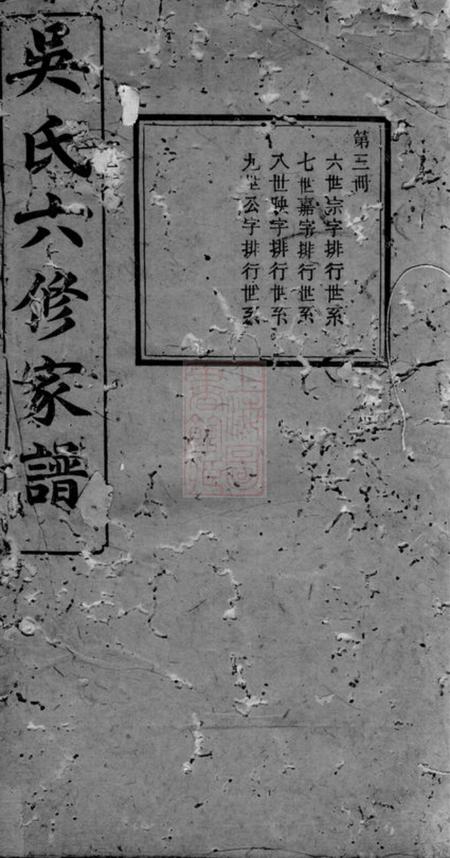 第三冊
六世宗字排行世系
七世嘉字排行世系
八世映字排行世系
九世公字排行世系
吳氏六修家譜